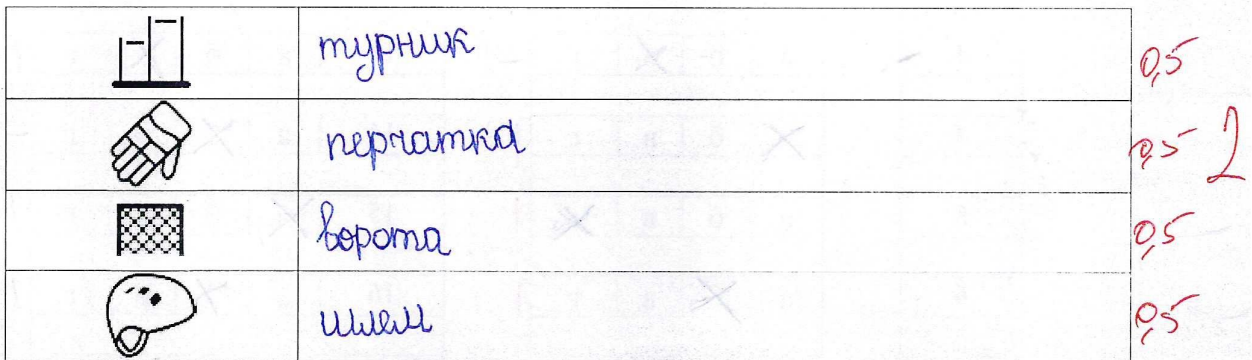 турник 0,5
перчатка 0,5 2
ворота 0,5
шлем 0,5